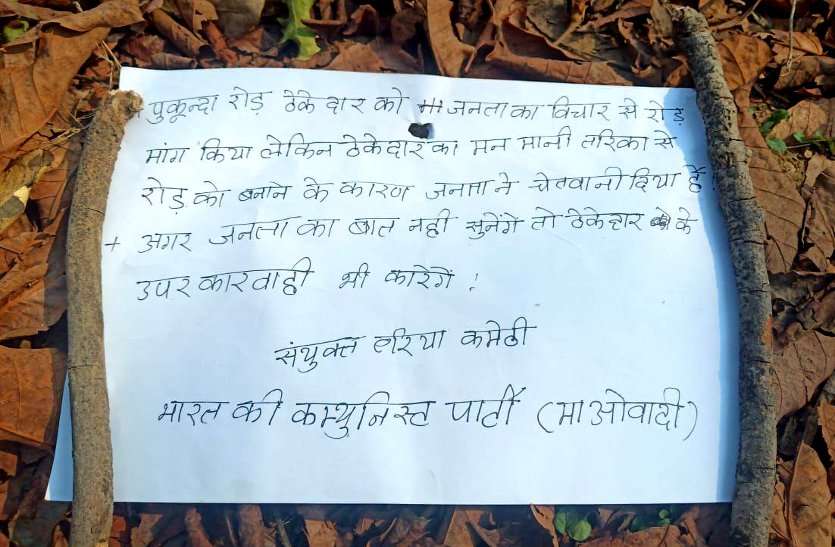 + पुकून्दा रोड़ ठेकेदार को जनता का विचार से रोड़
मांग किया लेकिन ठेकेदार का मन मानी तरिका से
रोड़ को बनाने के कारण जनता ने चेतवानी दिया हैं!
+ अगर जनता का बात नही सुनेंगे तो ठेकेदार के
उपर कारवाही भी कारेगें !
संयुक्त एरिया कमेठी
भारत की कम्युनिस्ट पार्टी (माओवादी)